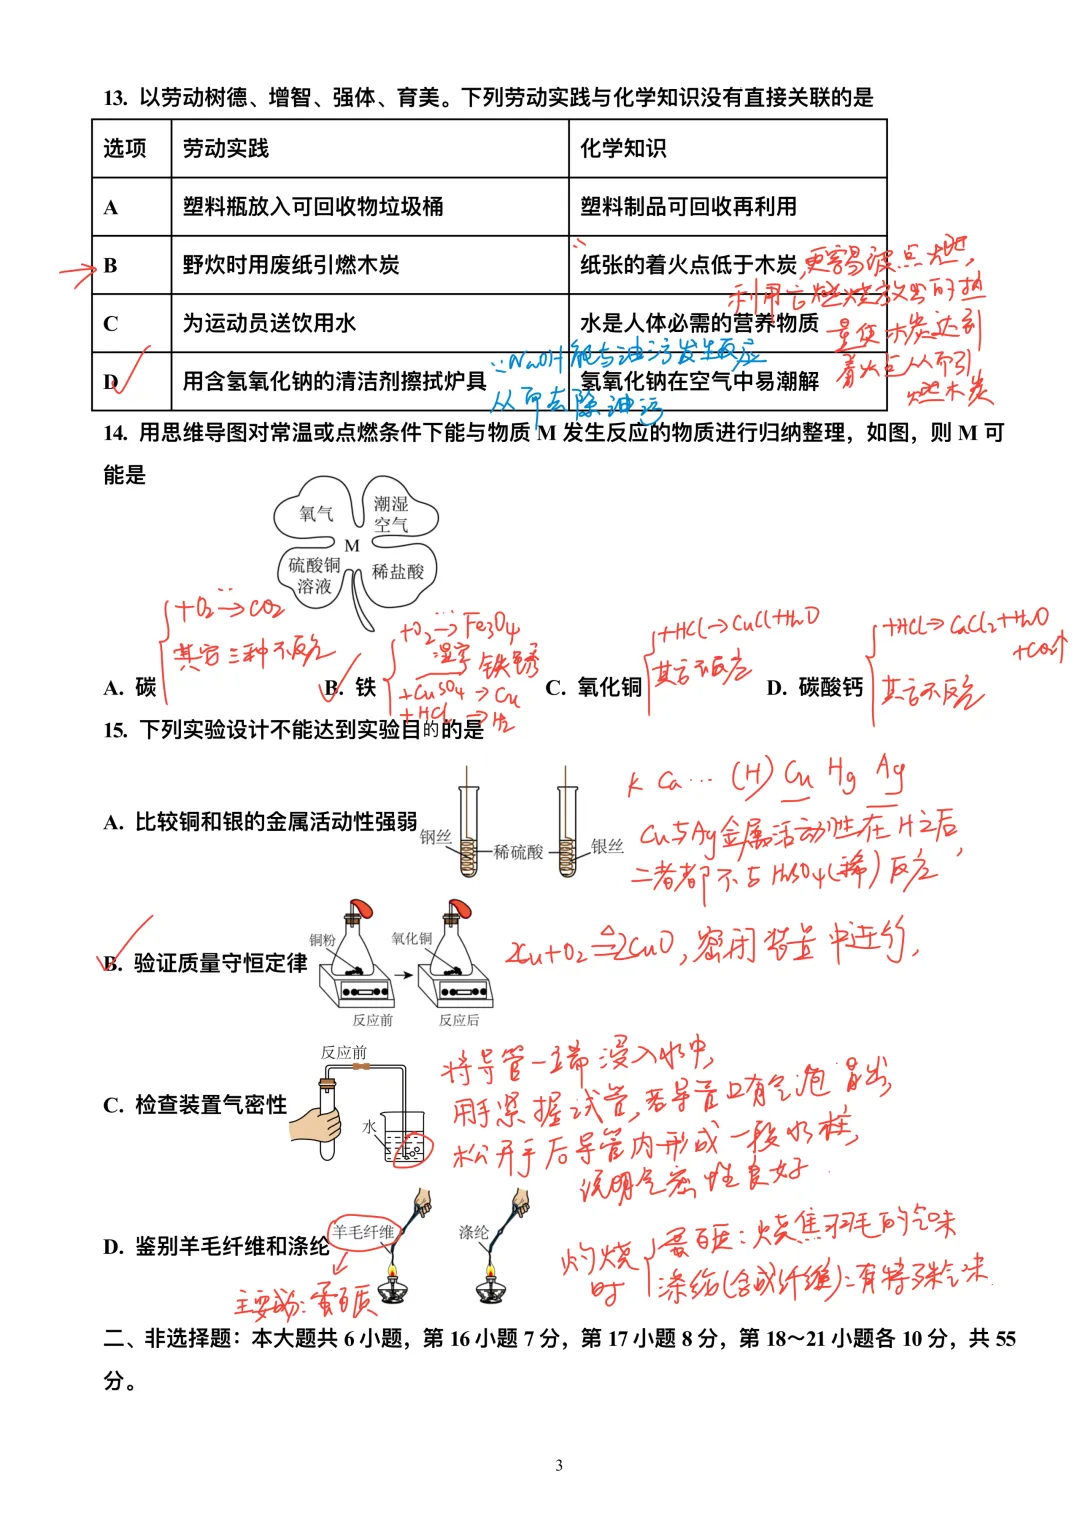 13. 以劳动树德、增智、强体、育美。下列劳动实践与化学知识没有直接关联的是
选项 劳动实践 化学知识
A 塑料瓶放入可回收物垃圾桶 塑料制品可回收再利用
B 野炊时用废纸引燃木炭 纸张的着火点低于木炭,更容易被点燃,
利用它燃烧放出的热
C 为运动员送饮用水 水是人体必需的营养物质 量使木炭达到
∵NaOH能与油污发生反应 着火点从而引
D 用含氢氧化钠的清洁剂擦拭炉具 氢氧化钠在空气中易潮解 燃木炭
从而去除油污
14. 用思维导图对常温或点燃条件下能与物质 M 发生反应的物质进行归纳整理，如图，则 M 可
能是
氧气 潮湿
空气
M
硫酸铜 稀盐酸
溶液
+O2→CO2
其它三种不反应
+O2→Fe3O4
湿空 铁锈
+CuSO4→Cu
+HCl→H2
+HCl→CuCl+H2O
其它不反应
+HCl→CaCl2+H2O
+CO2↑
其它不反应
A. 碳 B. 铁 C. 氧化铜 D. 碳酸钙
15. 下列实验设计不能达到实验目的的是
K Ca… (H) Cu Hg Ag
A. 比较铜和银的金属活动性强弱
铜丝 稀硫酸 银丝
Cu与Ag金属活动性在H之后,
二者都不与H2SO4(稀)反应
铜粉 氧化铜
B. 验证质量守恒定律
2Cu+O2≜2CuO,密闭装置中进行,
反应前 反应后
反应前
C. 检查装置气密性
水
将导管一端浸入水中,
用手紧握试管,若导管口有气泡冒出,
松开手后导管内形成一段水柱,
说明气密性良好
D. 鉴别羊毛纤维和涤纶
羊毛纤维 涤纶
主要成分:蛋白质
灼烧时
蛋白质:烧焦羽毛的气味
涤纶(合成纤维):有特殊气味
二、非选择题：本大题共 6 小题，第 16 小题 7 分，第 17 小题 8 分，第 18～21 小题各 10 分，共 55
分。
3